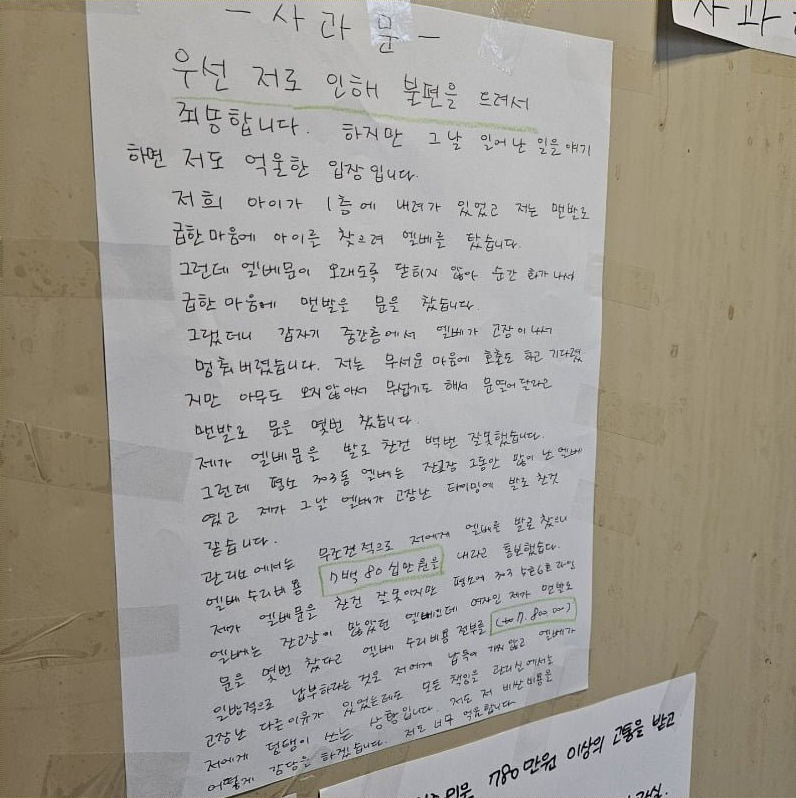 - 사 과 문 -
우선 저로 인해 불편을 드려서
죄송합니다. 하지만 그날 일어난 일을 얘기
하면 저도 억울한 입장입니다.
저희 아이가 1층에 내려가 있었고 저는 맨발로
급한 마음에 아이를 찾으려 엘베를 탔습니다.
그런데 엘베문이 오래도록 닫히지 않아 순간 화가 나서
급한 마음에 맨발을 문을 찼습니다.
그랬더니 갑자기 중간층에서 엘베가 고장이 나서
멈춰버렸습니다. 저는 무서운 마음에 호출도 하고 기다렸
지만 아무도 오지않아서 무섭기도 해서 문열어달라고
맨발로 문을 몇번 찼습니다.
제가 엘베문을 발로 찬건 백번 잘못했습니다.
그런데 평소 303동 엘베는 잔고장 그동안 많이 난 엘베
였고 제가 그날 엘베가 고장난 타이밍에 발로 찬것
같습니다.
관리소에서는 무조건적으로 저에게 엘베를 발로 찼으니
엘베 수리비용 7백80십만원을 내라고 통보했습니다.
제가 엘베문을 찬건 잘못이지만 평소에 303 5호6호라인
엘베는 잔고장이 많았던 엘베인데 여자인 제가 맨발로
문을 몇번 찼다고 엘베 수리비용 전부를 (₩7.800.00)
일방적으로 납부하라는것은 저에게 납득이 가지 않고 엘베가
고장난 다른이유가 있었는데도 모든 책임을 관리실에서는
저에게 덤탱이 쓰는 상황입니다. 저도 저 비싼비용을
어떻게 감당을 하겠습니다. 저도 너무 억울합니다
사과
780만원 이상의 고통을 받고